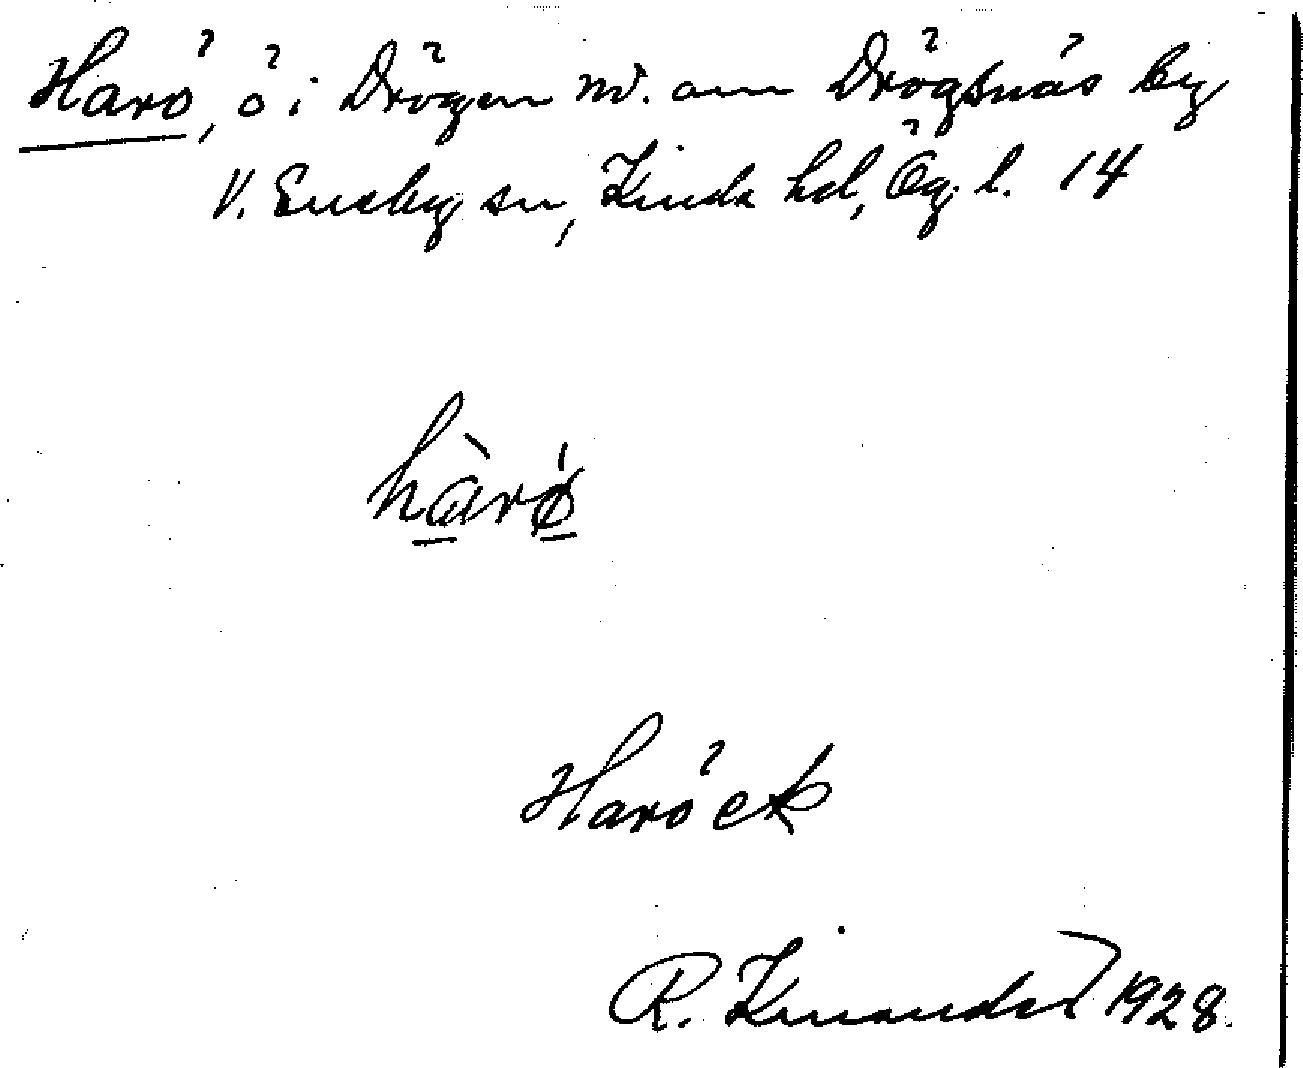 Harö, ö i Drögen nv. om Drögsnäs by
V. Eneby sn, Kinda hd, Ög. l. 14
hàrǿ
Haröck
R. Kinander 1928.